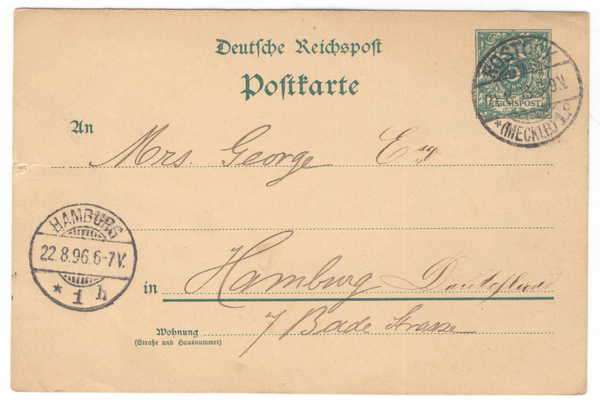 Deutsche Reichspost
Postkarte
ROSTOCK
REICHSPOST
* (MECKLB) 1.
An
Mrs George Esq
HAMBURG
22.8.96.6-7V.
* 1 h
in
Hamburg Deutschland
Wohnung
(Straße und Hausnummer)
7 Bade Strasse